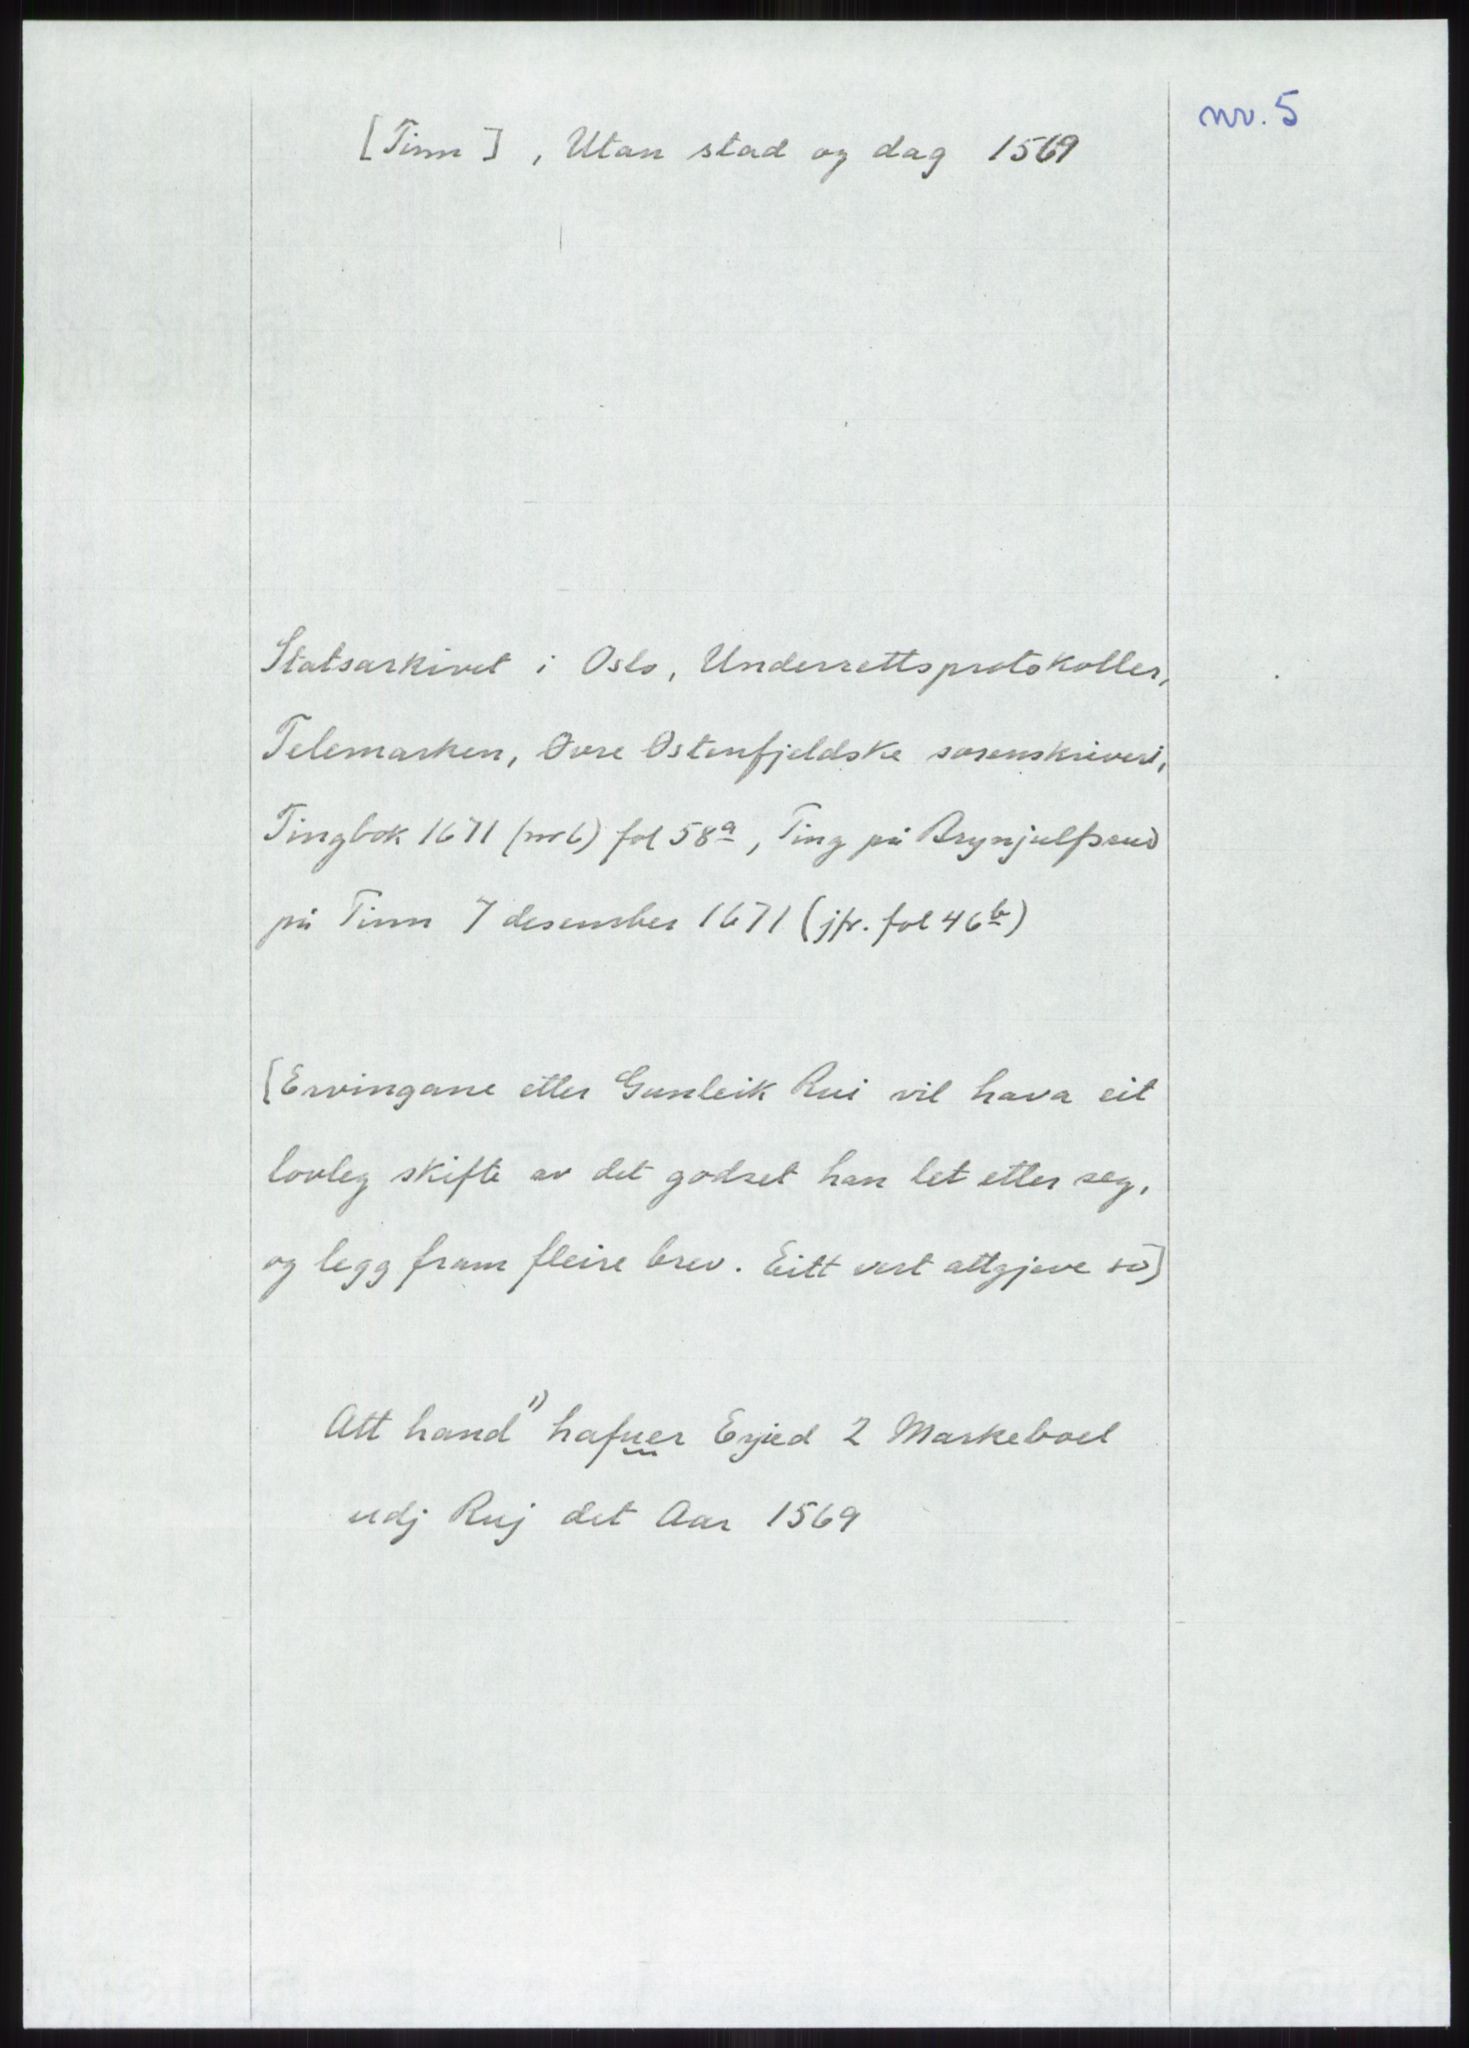 nr. 5
[Tinn], Utan stad og dag 1569
Statsarkivet i Oslo, Underrettsprotokoller,
Telemarken, Øvre Østenfjeldske sorenskriveri,
Tingbok 1671 (nr 6) fol 58a, Ting på Brynjulfsrud
på Tinn 7 desember 1671 (jfr. fol 46b)
[Ervingane etter Gunleik Rui vil hava eit
lovleg skifte av det godset han let etter seg,
og legg fram fleire brev. Eitt vert attgjeve so]
Att hand 1) hafuer Eyied 2 Markeboel
udj Ruj det Aar 1569